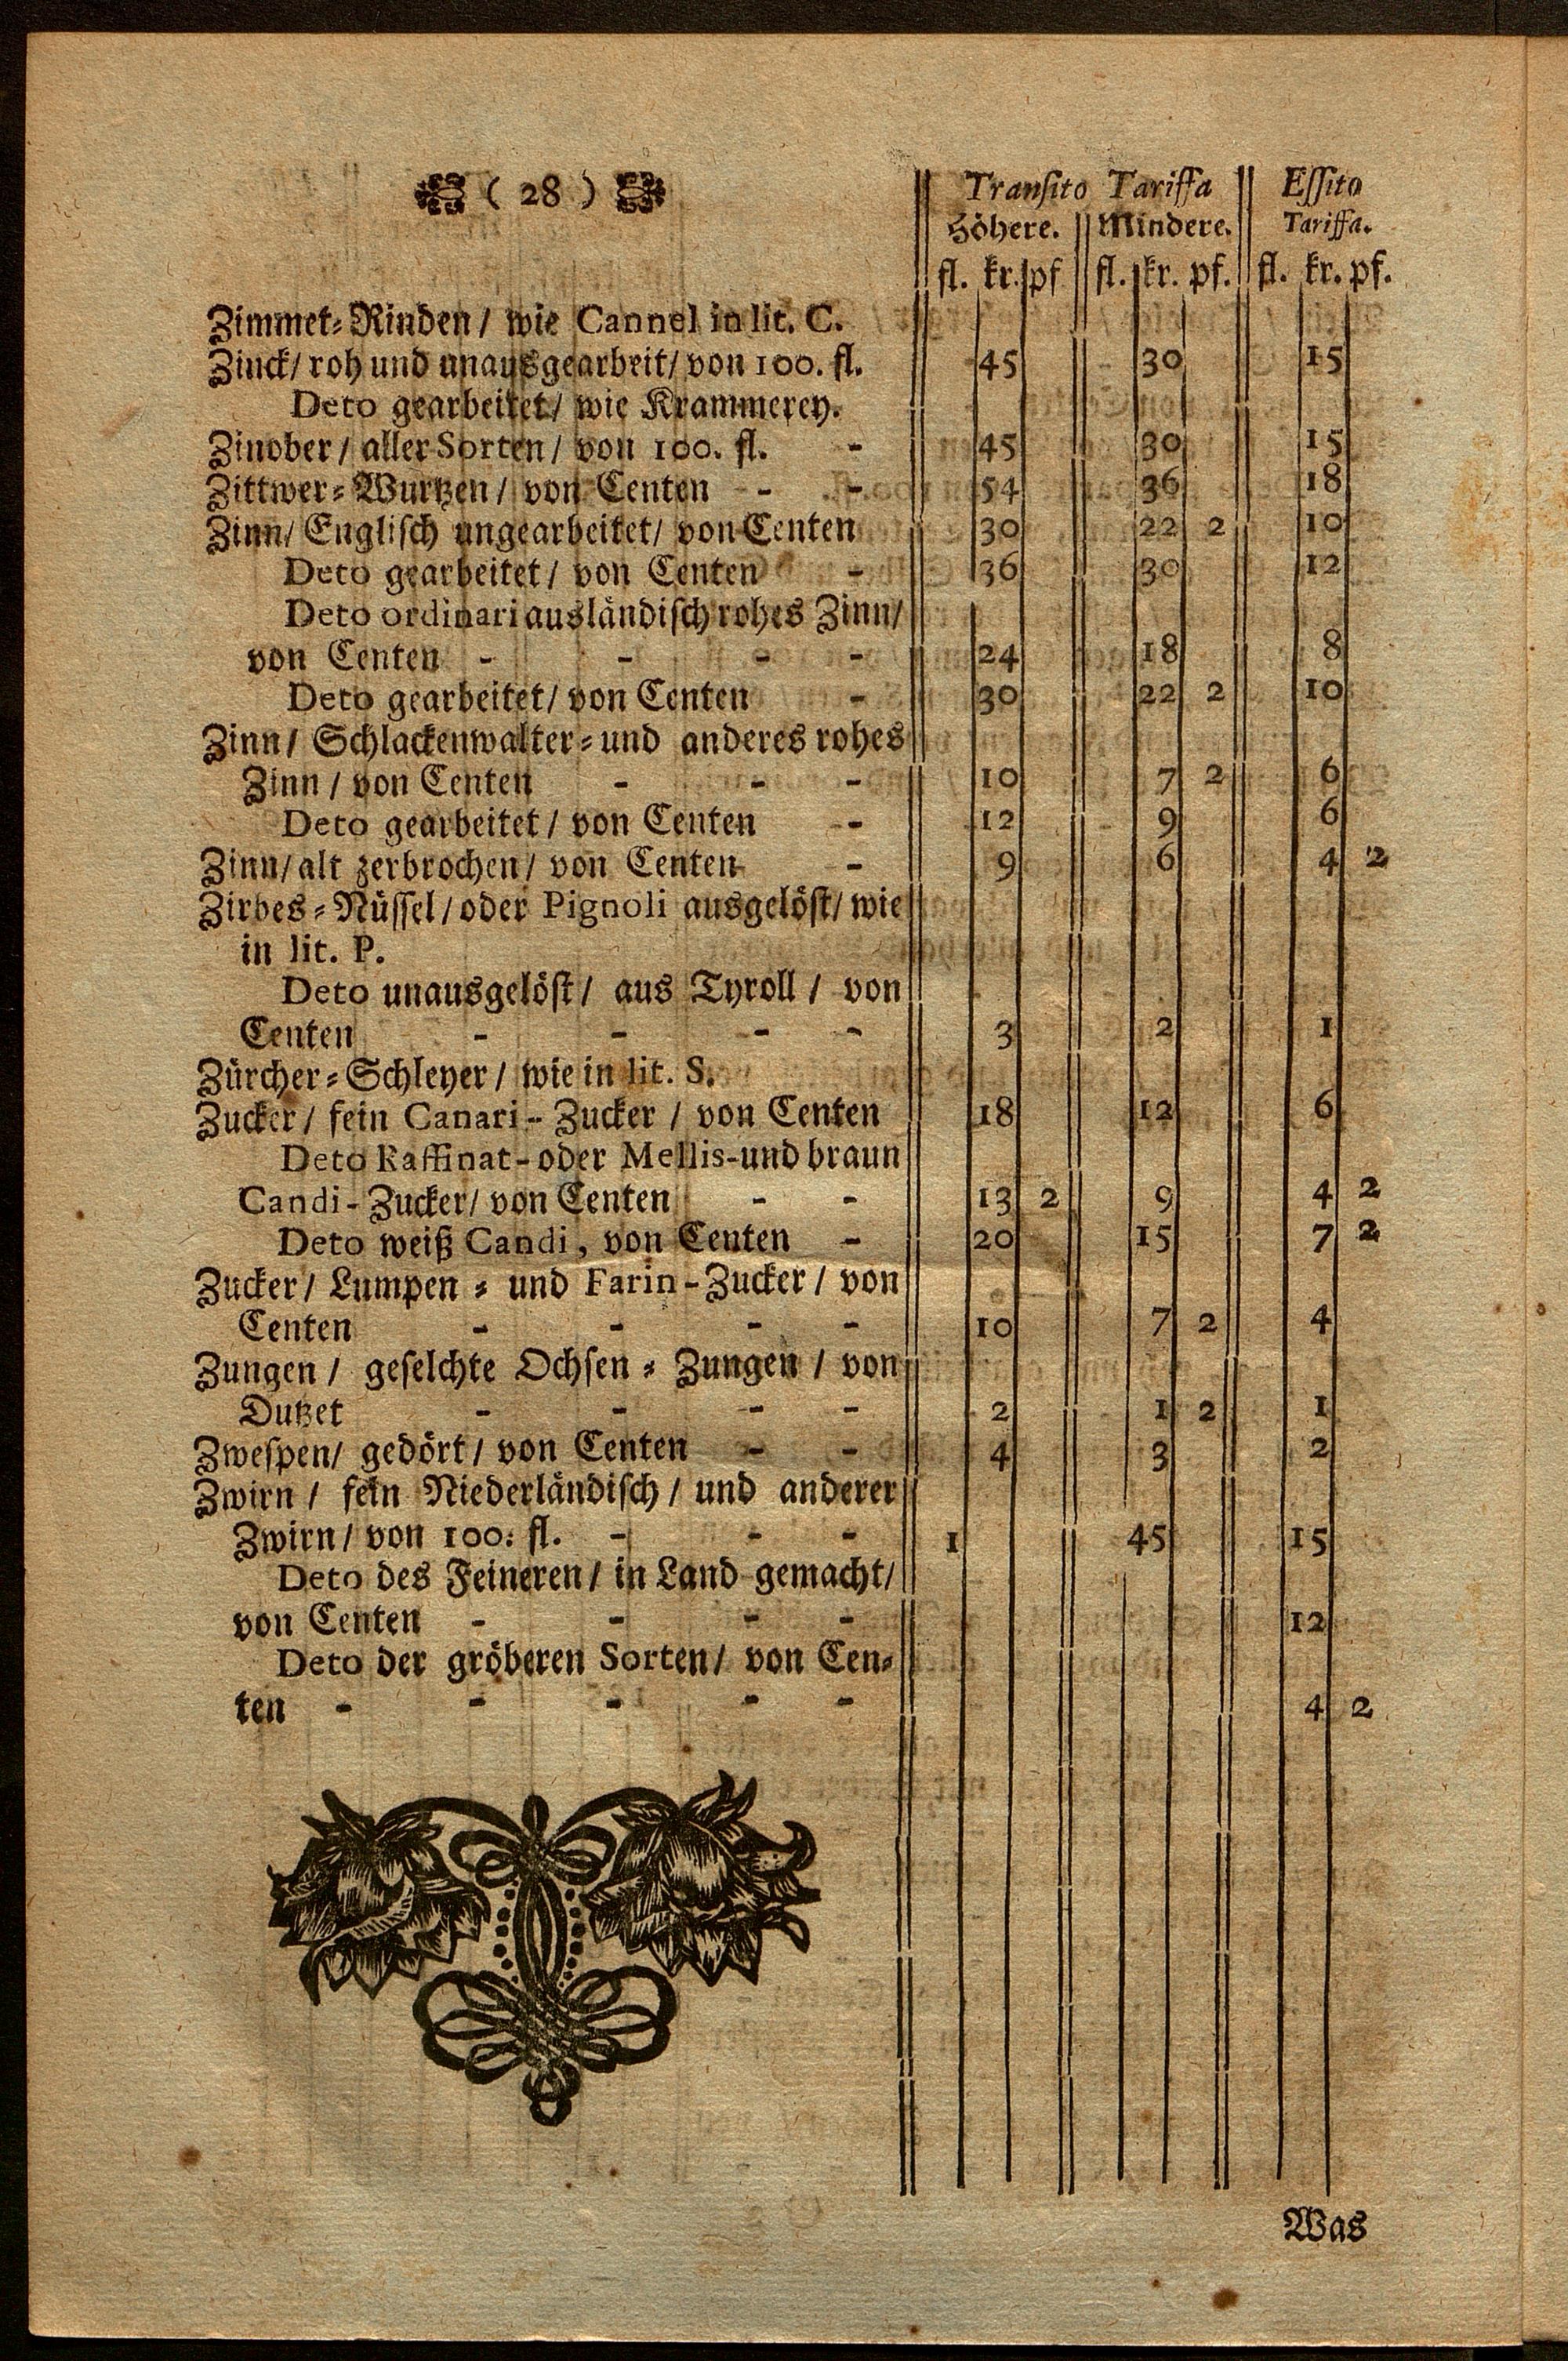 ( 28 )
Transito Tariffa || Essito
Höhere. || Mindere. || Tariffa.
fl. kr. pf || fl. kr. pf. || fl. kr. pf.
Zimmet-Rinden / wie Cannel in lit. C.
Zinck / roh und unausgearbeit / von 100. fl. 45 30 15
Deto gearbeitet / wie Krammerey.
Zinober / aller Sorten / von 100. fl. - 45 30 15
Zittwer-Wurtzen / von Centen - - 54 36 18
Zinn / Englisch ungearbeitet / von Centen 30 22 2 10
Deto gearbeitet / von Centen - 36 30 12
Deto ordinari ausländisch rohes Zinn /
von Centen - - - - 24 18 8
Deto gearbeitet / von Centen - 30 22 2 10
Zinn / Schlackenwalter- und anderes rohes
Zinn / von Centen - - - 10 7 2 6
Deto gearbeitet / von Centen - 12 9 6
Zinn / alt zerbrochen / von Centen - 9 6 4 2
Zirbes-Nüssel / oder Pignoli ausgelöst / wie
in lit. P.
Deto unausgelöst / aus Tyroll / von
Centen - - - - 3 2 1
Zürcher-Schleyer / wie in lit. S.
Zucker / fein Canari-Zucker / von Centen 18 12 6
Deto Raffinat- oder Mellis- und braun
Candi-Zucker / von Centen - - 13 2 9 4 2
Deto weiß Candi, von Centen - 20 15 7 2
Zucker / Lumpen- und Farin-Zucker / von
Centen - - - - 10 7 2 4
Zungen / geselchte Ochsen-Zungen / von
Dutzet - - - - 2 1 2 1
Zwespen / gedört / von Centen - - 4 3 2
Zwirn / fein Niederländisch / und anderer
Zwirn / von 100. fl. - - - 1 45 15
Deto des Feineren / in Land gemacht /
von Centen - - - - 12
Deto der gröberen Sorten / von Cen-
ten - - - - - 4 2
Was